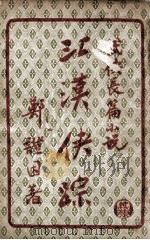 武俠長篇小說
江漢俠踪
鄭證因著